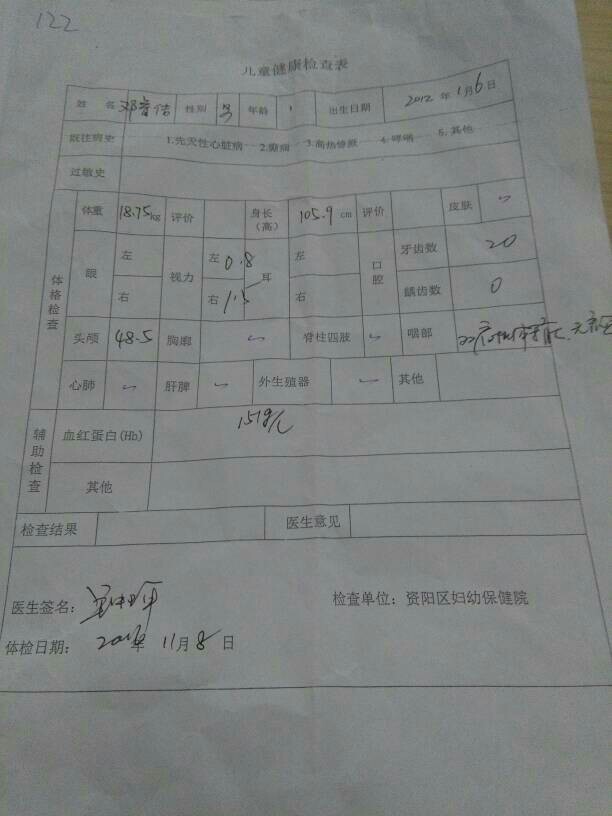 122
儿童健康检查表
姓名 邓 佶 性别 男 年龄 出生日期 2012 年 1 月 6 日
既往病史 1.先天性心脏病 2.癫痫 3.高热惊厥 4.哮喘 5.其他
过敏史
体格检查
体重 18.75 kg 评价 身长(高) 105.9 cm 评价 皮肤 ✓
眼 左 视力 左 0.8 耳 左 口腔 牙齿数 20
右 右 1.5 右 龋齿数 0
头颅 48.5 胸廓 ✓ 脊柱四肢 ✓ 咽部
心肺 ✓ 肝脾 ✓ 外生殖器 ✓ 其他
辅助检查
血红蛋白(Hb) 151g/L
其他
检查结果 医生意见
医生签名: 检查单位: 资阳区妇幼保健院
体检日期: 年 11 月 8 日